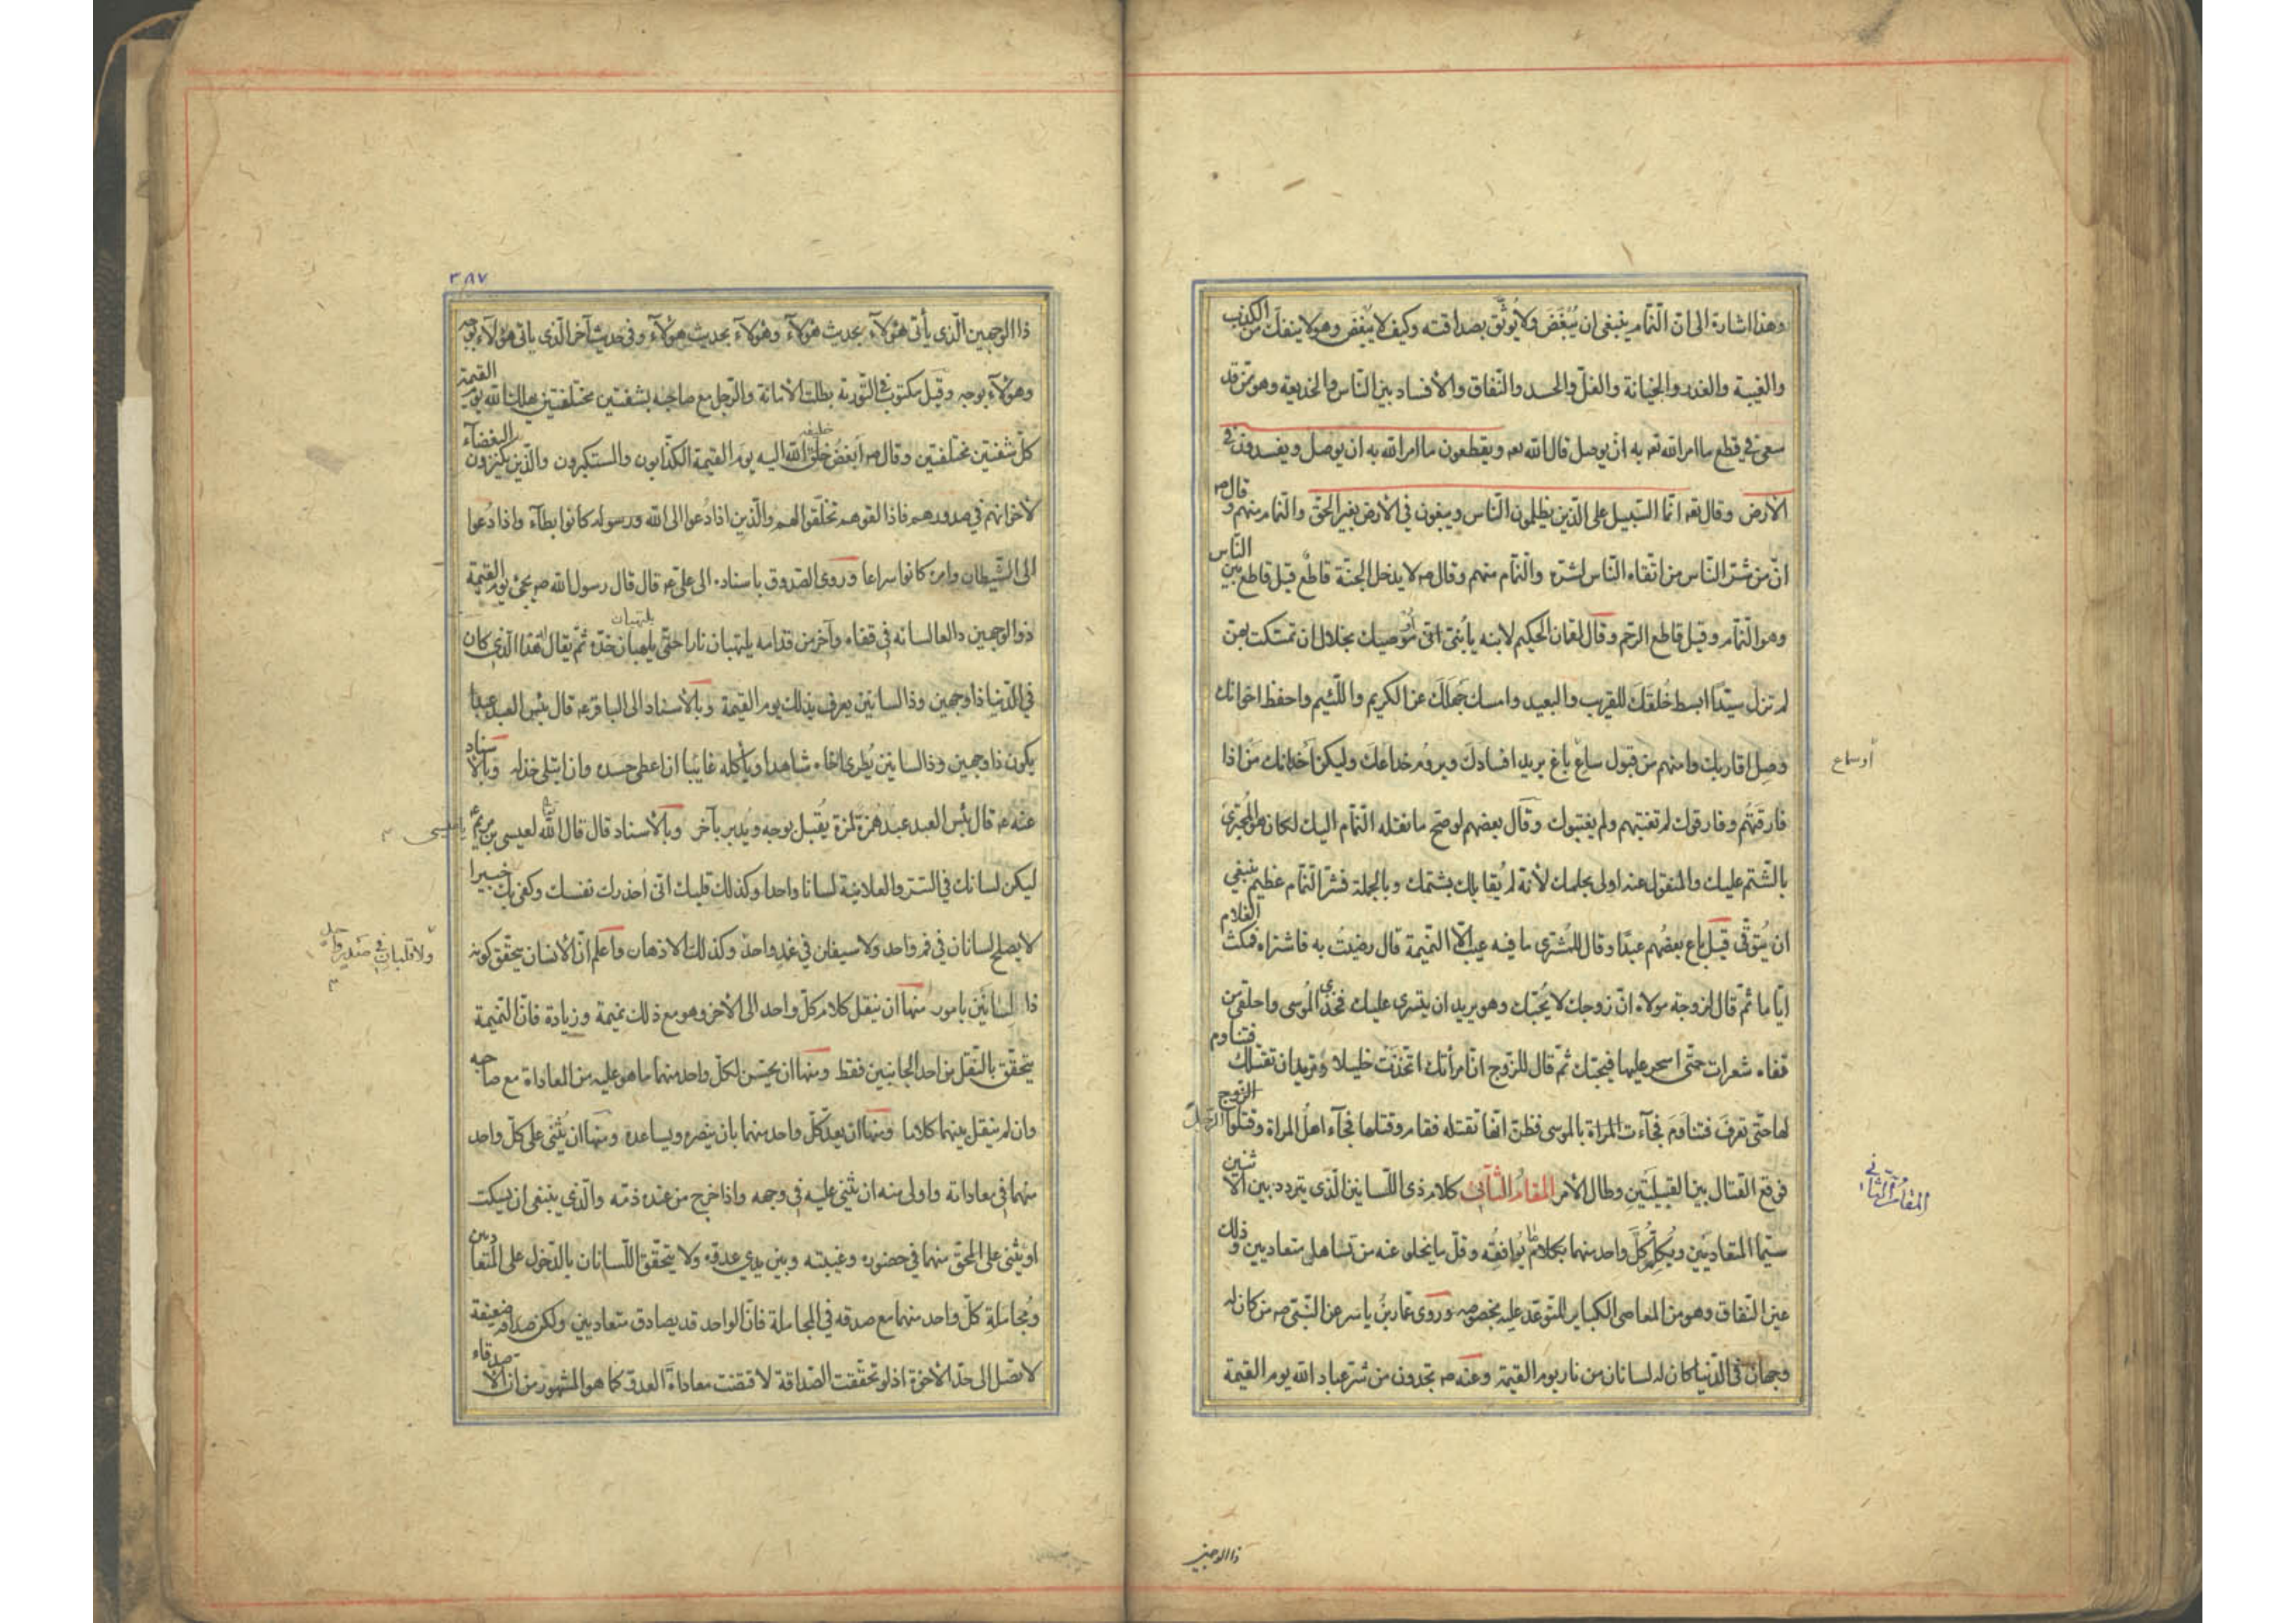 وهذا اشارة الى انّ النمّام ينبغى ان يُبغَضَ ولا يُوثَق بصداقته وكيف لا يُبغَض وهو لا ينفكّ من الكذب
والغيبة والغدر والخيانة والغلّ والحسد والنّفاق والأفساد بين النّاس والخديعة وهو ممّن قد
سعى في قطع ما امر الله تعه به ان يوصل قال الله تعه ويقطعون ما امر الله به ان يوصل ويفسدون في
الأرض وقال تعه انّما السّبيل على الّذين يظلمون النّاس ويبغون في الأرض بغير الحقّ والنّمام منهم وقال ص
انّ من شرّ النّاس من اتقاه النّاس لشرّه والنّمام منهم وقال ص لا يدخل الجنّة قاطع قيل قاطع بين النّاس
وهو النّمام وقيل قاطع الرّحم وقال لقمان الحكيم لابنه يا بُنىّ انّى موصيك بخلال ان تمسّكت بهنّ
لم تزل سيّدًا ابسط خُلقَكَ للقريب والبعيد وامسك جَهلَكَ عن الكريم واللّئيم واحفظ اخوانك
وصِل اقاربك وامنهم من قبول ساعٍ باغ يريد افسادَكَ ويروم خداعَكَ وليكن اخوانك مَن اذا
او سماع
فارقتَهُم وفارقوك لم تغتبهم ولم يغتبوك وقال بعضهم لو صحّ ما نقله النّمام اليك لكان هو المُجترئ
بالشّتم عليك والمنقول عنه اولى بحلمك لأنه لم يُقابلك بشتمك وبالجملة فشرّ النّمام عظيم ينبغي
ان يُتوقّى قيل باع بعضُهم عبدًا وقال للمُشترى ما فيه عيب الّا النّميمة قال رضيتُ به فاشتراه فمكث الغلام
ايّاما ثمّ قال لزوجة مولاه انّ زوجك لا يُحبّك وهو يريد ان يتسرى عليك فخذي المُوسى واحلقى من
قفاه شعرات حتّى اسحر عليها فيحبّك ثمّ قال للزّوج انّ امرأتك اتّخذَتْ خليلا وتريد ان تقتلك فتناوم
لها حتّى تعرفَ فتناوَمَ فجآءت المراة بالموسى فظنّ انّها تقتله فقام وقتلها فجآء اهلُ المراة وقتلوا الزّوج
فوقع القتال بين القبيلَتَين وطال الأمر المقامُ الثّانى كلام ذى اللّسانين الّذى يتردد بين الاثنين
المقام الثّانى
سيّما المتعاديَين ويُكلِّمُ كلَّ واحد منهما بكلام يُوافقُه وقلّ ما يخلو عنه من تساهل متعاديين وذلك
عين النّفاق وهو من المعاصى الكباير المتوعّد عليه بخصوصه وروى عمّار بنُ ياسر عن النّبىّ ص من كان له
وجهان فى الدّنيا كان له لسانان من نار يوم القيمة وعنه ص تجدون من شرّ عباد الله يوم القيمة
ذا الوجهين
٣٨٧
ذا الوجهين الّذى يأتى هؤلآء بحديث هؤلآء وهؤلآء بحديث هؤلآء وفى حديث آخر الّذى ياتى هؤلآء بوجه
وهؤلآء بوجه وقيل مكتوب فى التّورية بطلت الأمانة والرّجل مع صاحبه بشفتين مختلفتين يهلك الله يوم القيمة
كلّ شفتين مختلفتين وقال ص ابغض خلق الله اليه يوم القيمة الكذّابون والمستكبرون والّذين يكنزون البغضآء
خليقة
لأخوانهم في صدورهم فاذا لقوهم تخلّقوا لهم والّذين اذا دُعوا الى الله ورسوله كانوا بطآء واذا دُعوا
الى الشّيطان وامره كانوا سراعا وروى الصّدوق باسناده الى علىّ عه قال قال رسول الله ص يجئ يوم القيمة
ذو الوجهين دالعا لسانه في قفاه وآخر من قدامه يلتهبان نارا حتّى يلهبان خدّه ثمّ يقال هذا الّذى كان
يلتهبان
في الدّنيا ذا وجهين وذا لسانين يعرف بذلك يوم القيمة وبالأسناد الى الباقر عه قال بئس العبد عبدا
يكون ذا وجهين وذا لسانين يُطرى اخاه شاهدا ويأكله غايبًا ان اعطى حسده وان ابتلى خذله وبالأسناد
عنه عه قال بئس العبد عبد هُمزة لمزة يُقبل بوجه ويُدبر بآخر وبالأسناد قال قال الله لعيسى بن مريم ع
يا عيسى
ليكن لسانك في السّرّ والعلانية لسانا واحدا وكذلك قلبك انّى اُحذرك نفسك وكفى بك خبيرا
لا يصلح لسانان في فم واحد ولا سيفان في غمد واحد وكذلك الاذهان واعلم انّ الأنسان يتحقّق كونه
ولا قلبان في صدر واحد
ذا لسانَين بامور منها ان ينقل كلام كلّ واحد الى الأخر وهو مع ذلك نميمة وزيادة فانّ النّميمة
يتحقّق بالنّقل من احد الجانبين فقط ومنها ان يحسّن لكلّ واحد منهما ما هو عليه من المعاداة مع صاحبه
وان لم ينقل بينهما كلاما ومنها ان يعد كلّ واحد منهما بان ينصره ويساعده ومنها ان يُثنى على كلّ واحد
منهما في معاداته واولى منه ان يثنى عليه في وجهه واذا خرج من عنده ذمّه والّذى ينبغى ان يسكت
او يثنى على المحقّ منهما في حضوره وغيبته وبين يدي عدوّه ولا يتحقّق اللّسانان بالدّخول على المتعادين
ومُجاملة كلّ واحد منهما مع صدقه في المجاملة فانّ الواحد قد يصادق متعاديين ولكن صداقة ضعيفة
لا تصل الى حدّ الأخوّة اذ لو تحقّقت الصّداقة لاقتضت معاداة العدوّ كما هو المشهور من ان الأصدقاء